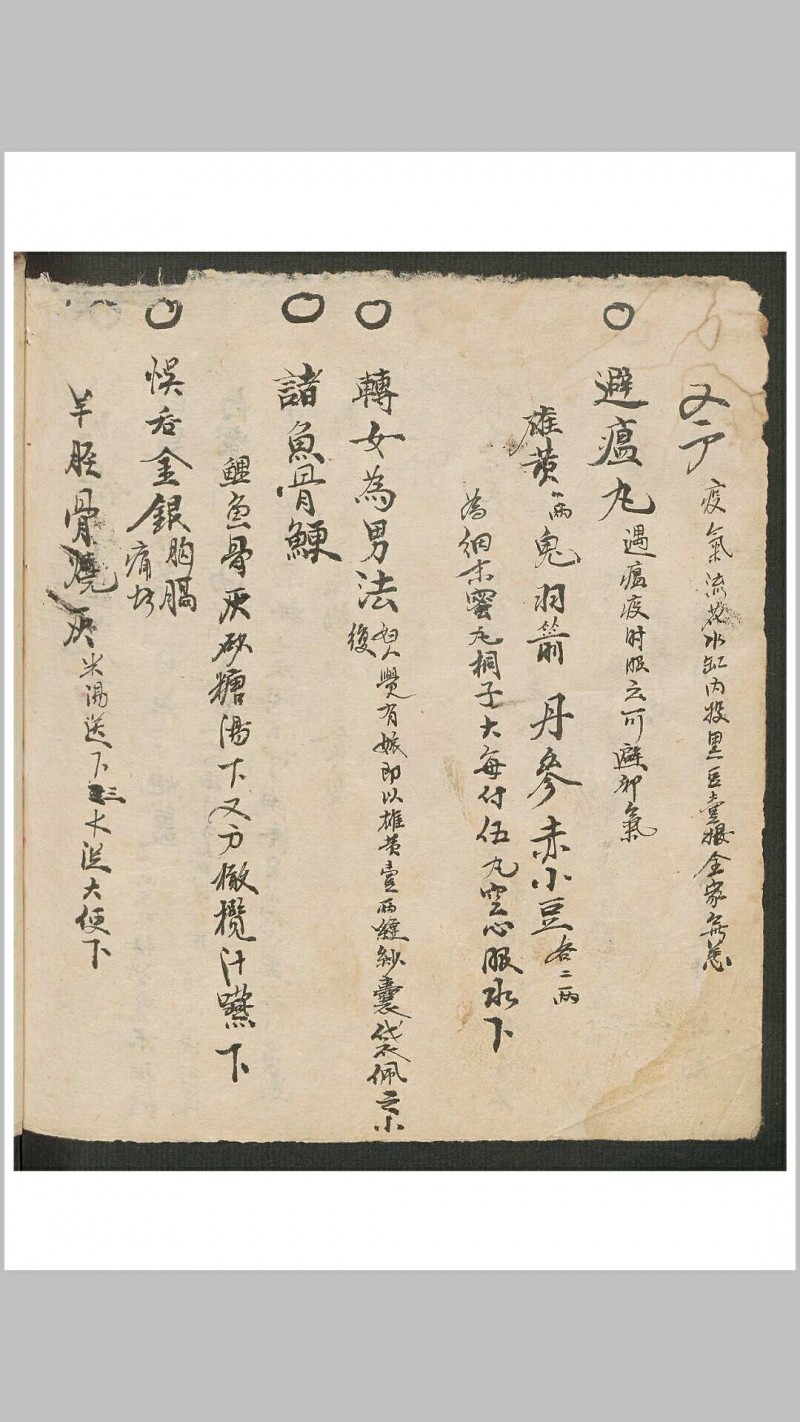 又方 疫氣流於水缸內投黑豆壹撮全家無恙
○ 避瘟丸 遇瘟疫时服之可避邪氣
雄黃一兩 鬼羽箭 丹參 赤小豆各二兩
為細末蜜丸桐子大每付伍丸空心服水下
○ 轉女為男法 婦人覺有娠即以雄黃壹兩縫紗囊袋佩之小
○ 諸魚骨鯁
鯉魚骨灰砂糖湯下又方橄欖汁嚥下
○ 悞吞金銀 胸膈痛
羊脛骨燒灰 米湯送下三 從大便下